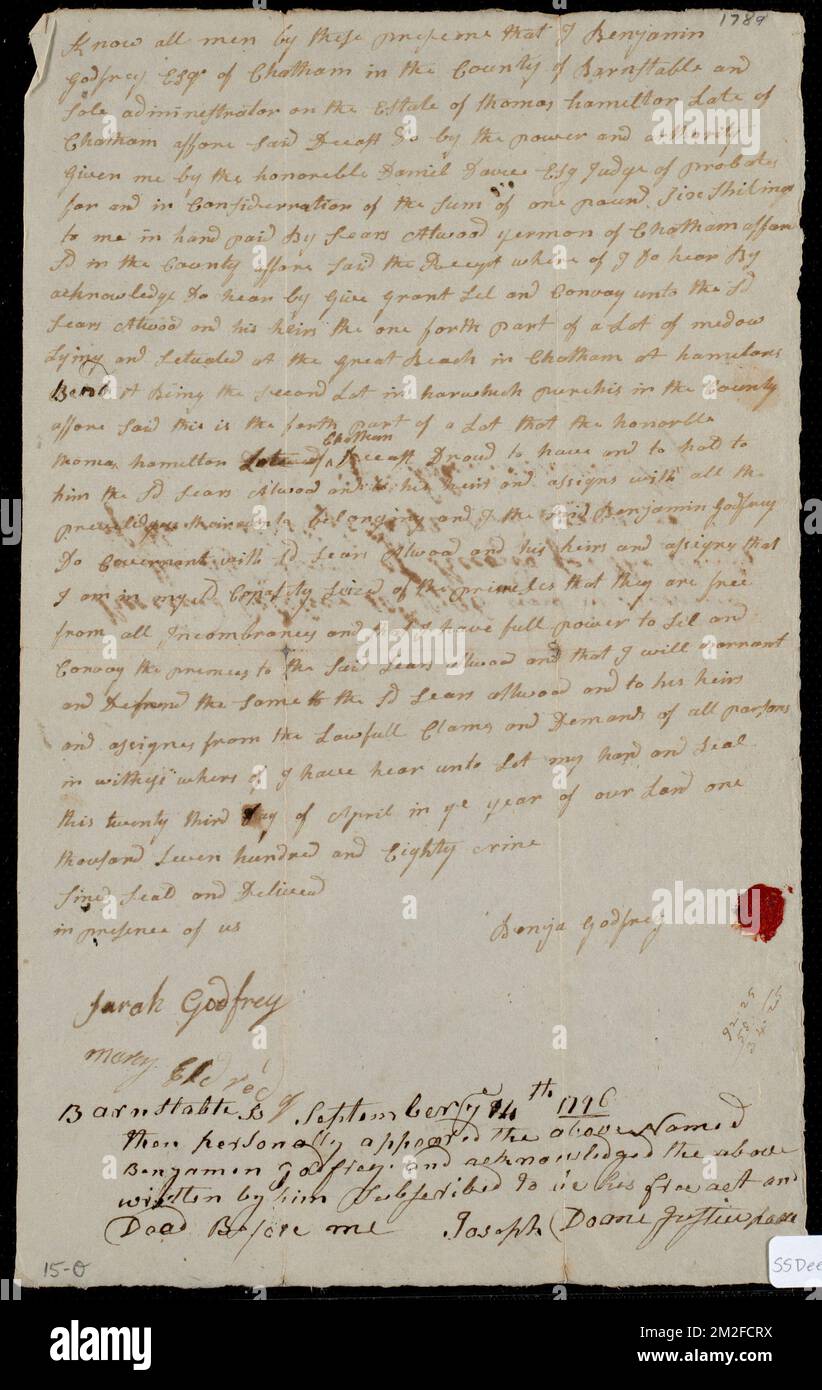 1789
Know all men by these preseme that I Benjamin
Godfrey Esqr of Chatham in the County of Barnstable and
Sole adminestrator on the Estate of thomas hamilton Late of
Chatham affore Said Deceast Do by the power and athority
Given me by the honorable Daniel Davice Esq Judge of probates
for and in Considerration of the Sum of one pound Six Shilings
to me in hand paid By Sears Atwood yermon of Chatham affore
Sd in the County affore Said the Recept where of I Do hear By
acknowledge Do hear by Give Grant Sel and Convay unto the Sd
Sears Atwood and his heirs the one forth part of a Lot of medow
Lying and Setuated at the great Beach in Chatham at hameltons
Bend it Being the Second Lot in harwhich purchis in the County
affore Said this is the forth part of a Lot that the honorble
Chatham
thomas hamilton Late of Deceast Drawd to have and to hold to
him the Sd Sears Atwood and to his heirs and assigns with all the
belonging and I the said Benjamin Godfrey
Do Covernant with Sd Sears Atwood and his heirs and assigns that
I am in my Sd Capassity Seized of the primeses that they are free
from all Incombrances and that I have full power to Sel and
Convay the premces to the Said Sears Atwood and that I will warrant
and Defrend the Same to the Sd Sears Atwood and to his heirs
and assignes from the Lawfull Clames and Demands of all parsons
in witness whers of I have hear unto Set my hand and Seal
this twenty third Day of April in ye year of our Lord one
thousand Seven hundred and Eighty nine
Sined Seald and Delived
in presence of us
Benja Godfrey
Sarah Godfrey
Mercy Eldred
Barnstable Ss September ye 14th 1796
then personally appeared the above Named
Benjamen Godfrey and acknowledged the above
written by him Subscribed to be his free act and
Dead Before me Joseph Doane Justice pace
15-0
SSDee
alamy
Image ID: 2M2FCRX
www.alamy.com